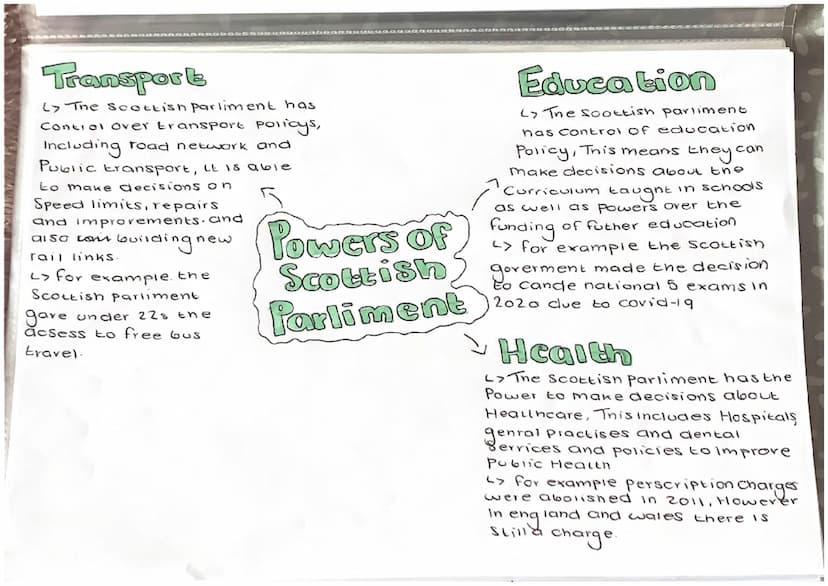 Transport
↳ The Scottish Parliment has
control over transport policys,
Including road network and
Public transport, it is able
to make decisions on
Speed limits, repairs
and improrements. and
also building new
rail links.
↳ for example. the
Scottish Parliment
gave under 22s the
acsess to free bus
travel.
Powers of
Scottish
Parliment
Education
↳ The Scottish parliment
has control of education
Policy, This means they can
make decisions about the
Curriculum taught in schools
as well as powers over the
funding of futher education
↳ for example the Scottish
goverment made the decision
to cancle national 5 exams in
2020 due to covid-19
Health
↳ The Scottish Parliment has the
Power to make decisions about
Healthcare, This includes Hospitals,
genral Practises and dental
Services and policies to improve
Public Health
↳ for example perscription charges
were abolished in 2011, However
in england and wales there is
still a charge.